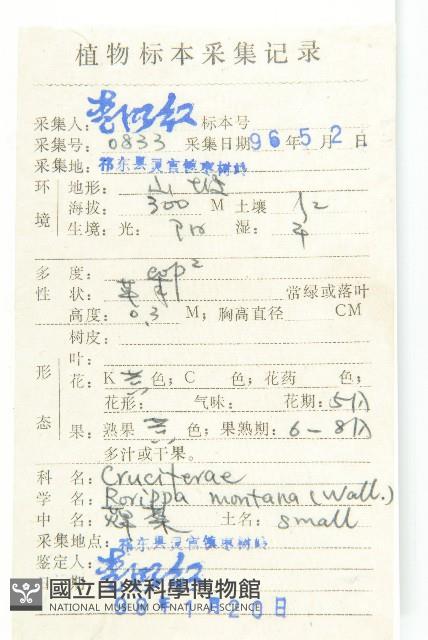 植物标本采集记录
采集人: 标本号
采集号: 0833 采集日期 96年5月2日
采集地: 祁东县灵官镇枣树岭
环境 地形: 山坡
海拔: 300 M 土壤
生境: 光: 阳 湿: 平
多度: cop2
性状: 草本 常绿或落叶
高度: 0.3 M; 胸高直径 CM
树皮:
形态 叶:
花: K 黄色; C 色; 花药 色;
花形: 气味: 花期: 5月
果: 熟果 色; 果熟期: 6-8月
多汁或干果。
科名: Cruciferae
学名: Rorippa montana (Wall.)
中名: 蔊菜 土名: small
采集地点: 祁东县灵官镇枣树岭
鉴定人:
日期: 月20日
國立自然科學博物館
NATIONAL MUSEUM OF NATURAL SCIENCE